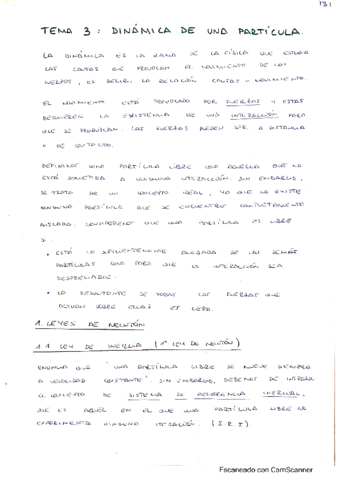 T3.1
TEMA 3: DINÁMICA DE UNA PARTÍCULA.
LA DINÁMICA ES LA RAMA DE LA FÍSICA QUE ESTUDIA
LAS CAUSAS QUE PROVOCAN EL MOVIMIENTO DE LOS
CUERPOS, ES DECIR, LA RELACIÓN CAUSAS - MOVIMIENTO.
EL MOVIMIENTO ESTÁ PROVOCADO POR FUERZAS Y ESTAS
REQUIEREN LA EXISTENCIA DE UNA INTERACCIÓN PARA
QUE SE PRODUZCAN. LAS FUERZAS PUEDEN SER A DISTANCIA
O DE CONTACTO.
DEFINIMOS UNA PARTÍCULA LIBRE COMO AQUELLA QUE NO
ESTÁ SOMETIDA A NINGUNA INTERACCIÓN. SIN EMBARGO,
SE TRATA DE UN CONCEPTO IDEAL, YA QUE NO EXISTE
NINGUNA PARTÍCULA QUE SE ENCUENTRE COMPLETAMENTE
AISLADA. QUE UNA PARTÍCULA ES LIBRE
• ESTÁ LO SUFICIENTEMENTE ALEJADA DE LAS DEMÁS
PARTÍCULAS COMO PARA QUE LA INTERACCIÓN SEA
DESPRECIABLE.
• LA RESULTANTE DE TODAS LAS FUERZAS QUE
ACTÚAN SOBRE ELLAS ES CERO.
1. LEYES DE NEWTON
1.1 LEY DE INERCIA (1ª LEY DE NEWTON)
ENUNCIA QUE "UNA PARTÍCULA LIBRE SE MUEVE SIEMPRE
A VELOCIDAD CONSTANTE" SIN EMBARGO, DEBEMOS DE
EL CONCEPTO DE SISTEMA DE REFERENCIA INERCIAL,
QUE ES AQUEL EN EL QUE UNA PARTÍCULA LIBRE NO
EXPERIMENTA NINGUNA (S.R.I).
Escaneado con CamScanner